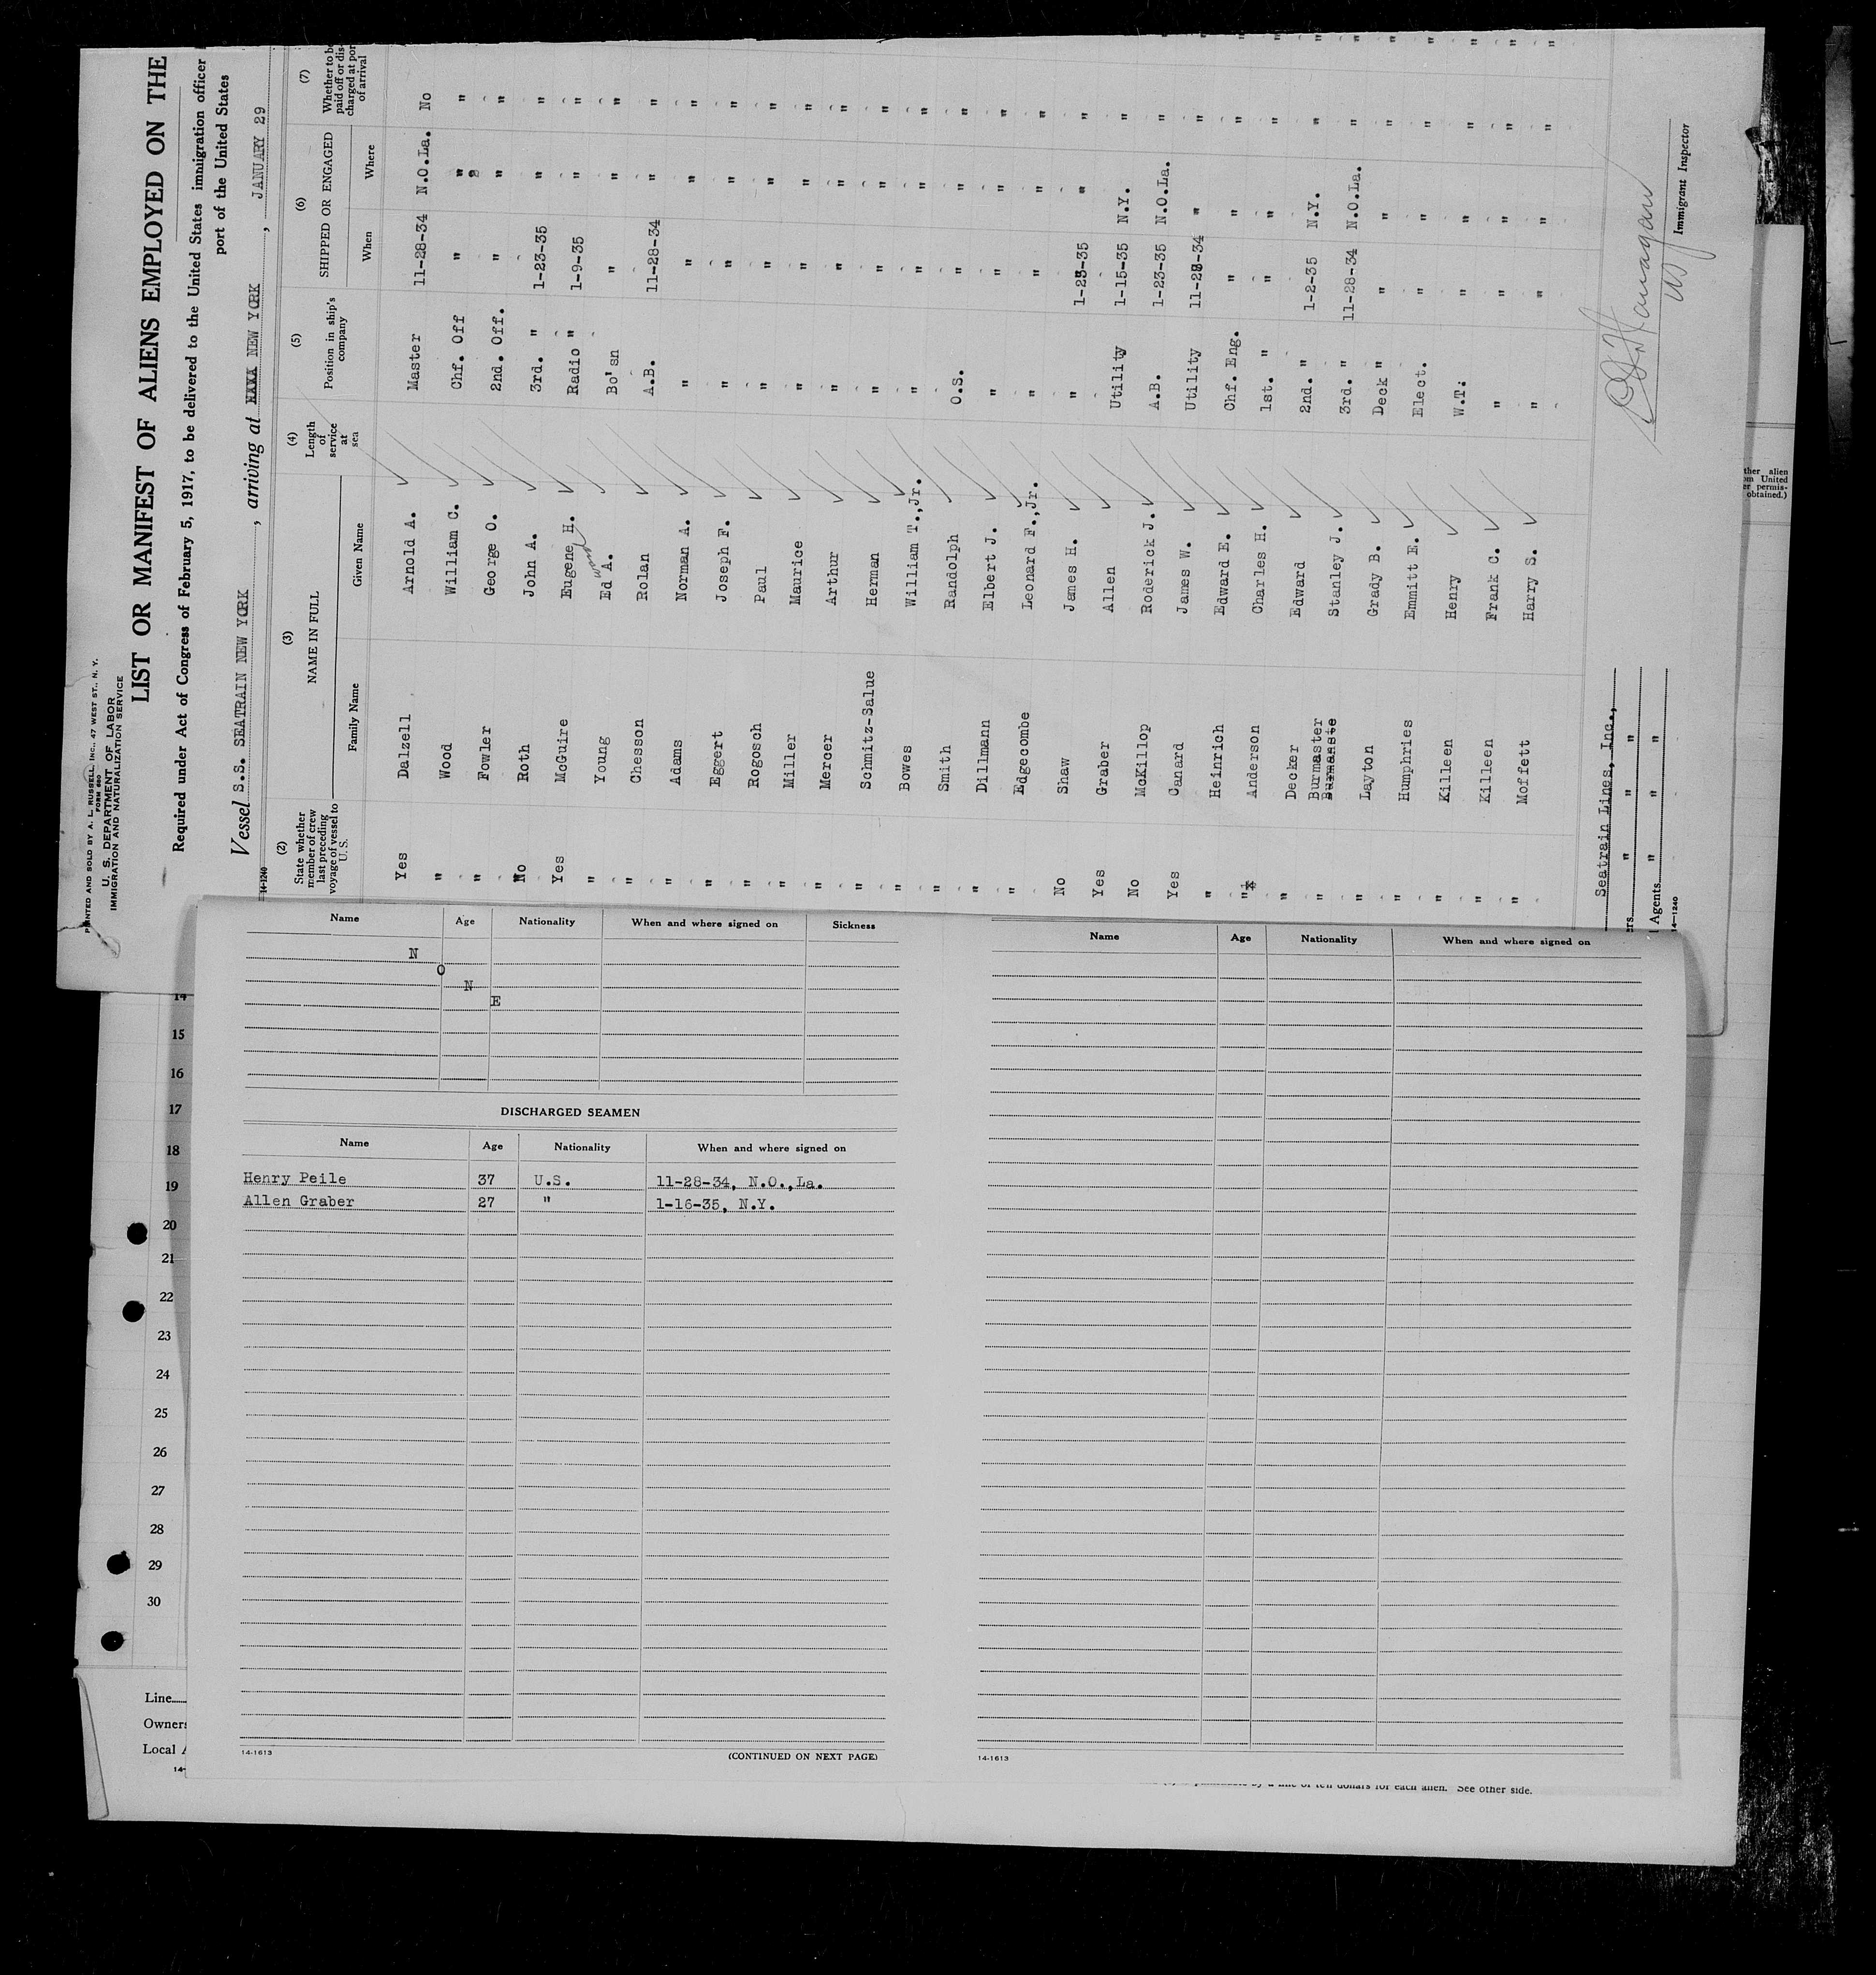 PRINTED AND SOLD BY A. L. RUSSELL, INC., 47 WEST ST., N. Y.
FORM 680
U. S. DEPARTMENT OF LABOR
IMMIGRATION AND NATURALIZATION SERVICE
LIST OR MANIFEST OF ALIENS EMPLOYED ON THE
Required under Act of Congress of February 5, 1917, to be delivered to the United States immigration officer
port of the United States
Vessel S.S. SEATRAIN NEW YORK, arriving at NEW YORK, JANUARY 29
14-1240
(2) State whether member of crew last preceding voyage of vessel to U. S. (3) NAME IN FULL Family Name Given Name (4) Length of service at sea (5) Position in ship's company (6) SHIPPED OR ENGAGED When Where (7) Whether to be paid off or discharged at port of arrival
Yes Dalzell Arnold A. Master 11-28-34 N.O.La. No
" Wood William C. Chf. Off " " "
" Fowler George O. 2nd. Off. " " "
No Roth John A. 3rd. " 1-23-35 " "
Yes McGuire Eugene H. Radio " 1-9-35 " "
" Young Ed A. ward Bo'sn " " "
" Chesson Rolan A.B. 11-28-34 " "
" Adams Norman A. " " " "
" Eggert Joseph F. " " " "
" Rogosch Paul " " " "
" Miller Maurice " " " "
" Mercer Arthur " " " "
" Schmitz-Salue Herman " " " "
" Bowes William T.,Jr. " " " "
" Smith Randolph O.S. " " "
" Dillmann Elbert J. " " " "
" Edgecombe Leonard F.,Jr. " " " "
No Shaw James H. " 1-23-35 " "
Yes Graber Allen Utility 1-15-35 N.Y. "
No McKillop Roderick J. A.B. 1-23-35 N.O.La. "
Yes Canard James W. Utility 11-28-34 " "
" Heinrich Edward E. Chf. Eng. " " "
" Anderson Charles H. 1st. " " " "
" Decker Edward 2nd. " 1-2-35 N.Y. "
" Burmaster Burmanste Stanley J. 3rd. " 11-28-34 N.O.La. "
" Layton Grady B. Deck " " " "
" Humphries Emmitt E. Elect. " " "
" Killeen Henry W.T. " " "
" Killeen Frank C. " " " "
" Moffett Harry S. " " " "
Seatrain Lines, Inc.,
ers " " "
Agents " " "
14-1240
Immigrant Inspector
ther alien
om United
er permis-
obtained.)
Name Age Nationality When and where signed on Sickness
N
O
N
E
DISCHARGED SEAMEN
Name Age Nationality When and where signed on
Henry Peile 37 U.S. 11-28-34, N.O.,La.
Allen Graber 27 " 1-16-35, N.Y.
14-1613
(CONTINUED ON NEXT PAGE)
Name Age Nationality When and where signed on
14-1613
14
15
16
17
18
19
20
21
22
23
24
25
26
27
28
29
30
Line
Owners
Local A
14-
by a fine of ten dollars for each alien. See other side.